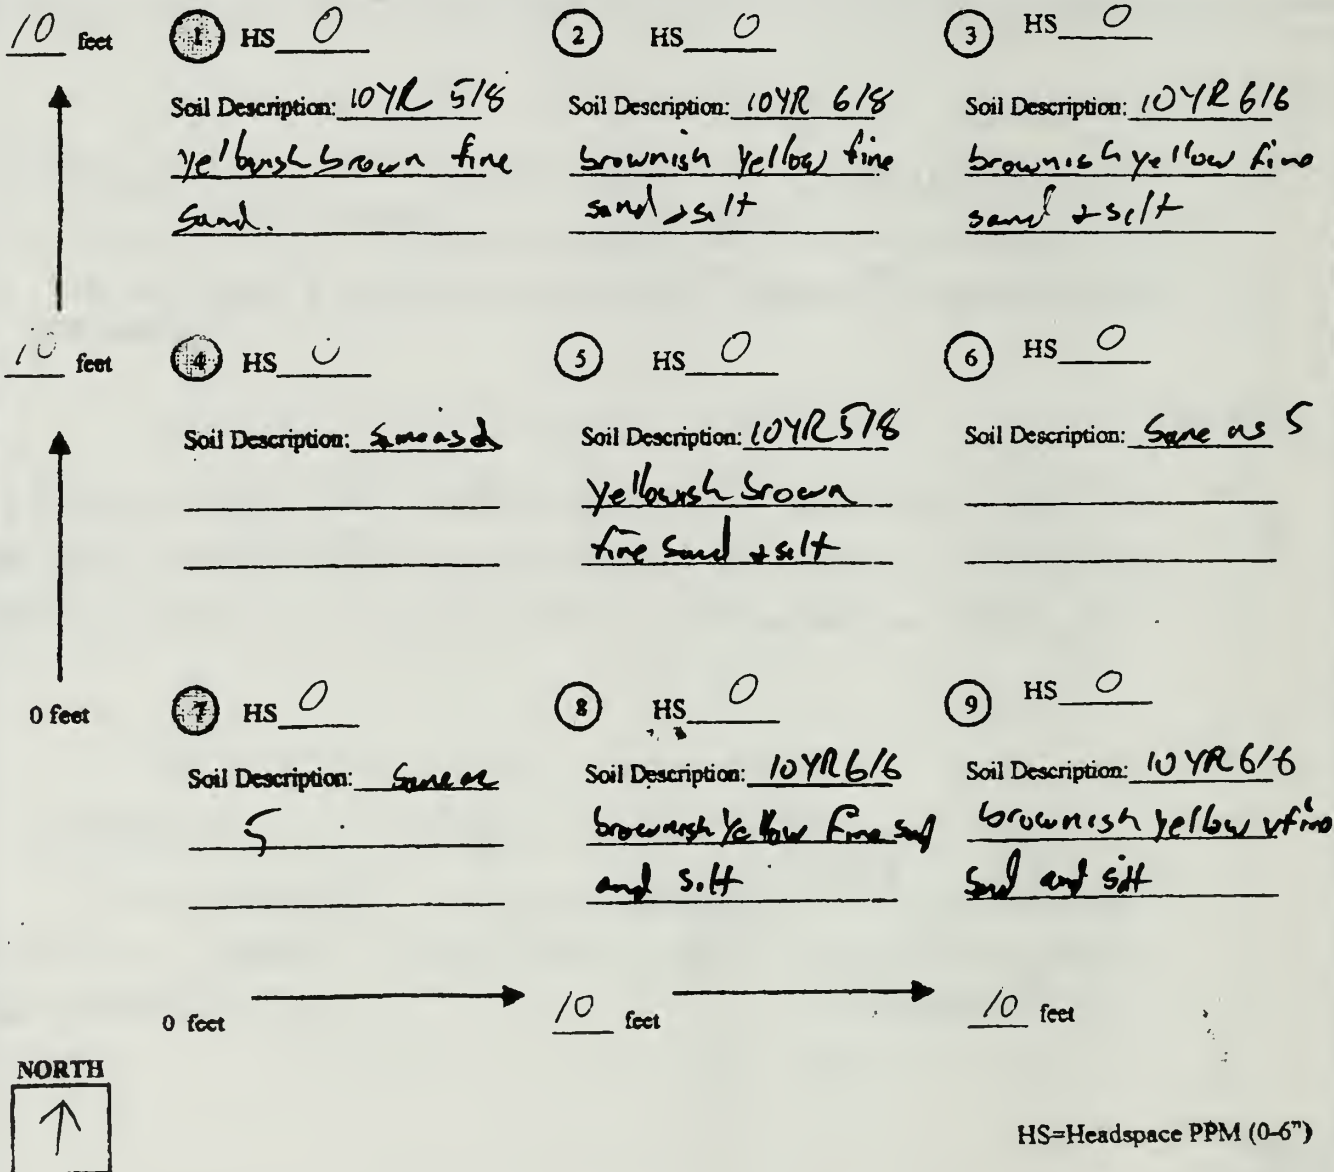 10 feet
1 HS 0
2 HS 0
3 HS 0
Soil Description: 10YR 5/8
yellowish brown fine
sand.
Soil Description: 10YR 6/8
brownish yellow fine
sand + silt
Soil Description: 10YR 6/6
brownish yellow fine
sand + silt
10 feet
4 HS 0
5 HS 0
6 HS 0
Soil Description: Same as
Soil Description: 10YR 5/8
yellowish brown
fine sand + silt
Soil Description: Same as 5
0 feet
7 HS 0
8 HS 0
9 HS 0
Soil Description: Same as
5
Soil Description: 10YR 6/6
brownish yellow fine sand
and silt
Soil Description: 10YR 6/6
brownish yellow vfine
sand and silt
0 feet
10 feet
10 feet
NORTH
HS=Headspace PPM (0-6")